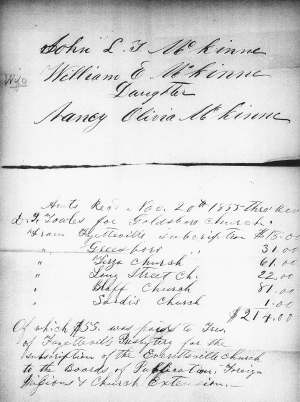 John L. F. McKinne
Wife
William E McKinne
Daughter
Nancy Olivia McKinne
Amts Rec. Nov. 20th 1855 thro Rev
D. F. Towles for Goldsboro Church.
From Fayetteville subscription $15.00
" Greensboro " 31.00
" Tirza Church 61.00
" Long Street Ch. 22.00
" Bluff Church 81.00
" Sardis Church 1.00
$214.00
Of which $55. was paid to Treas
of Fayetteville Presbytery for the
subscription of the Church
to the Boards of Publication, Foreign
Missions & Church Extension.